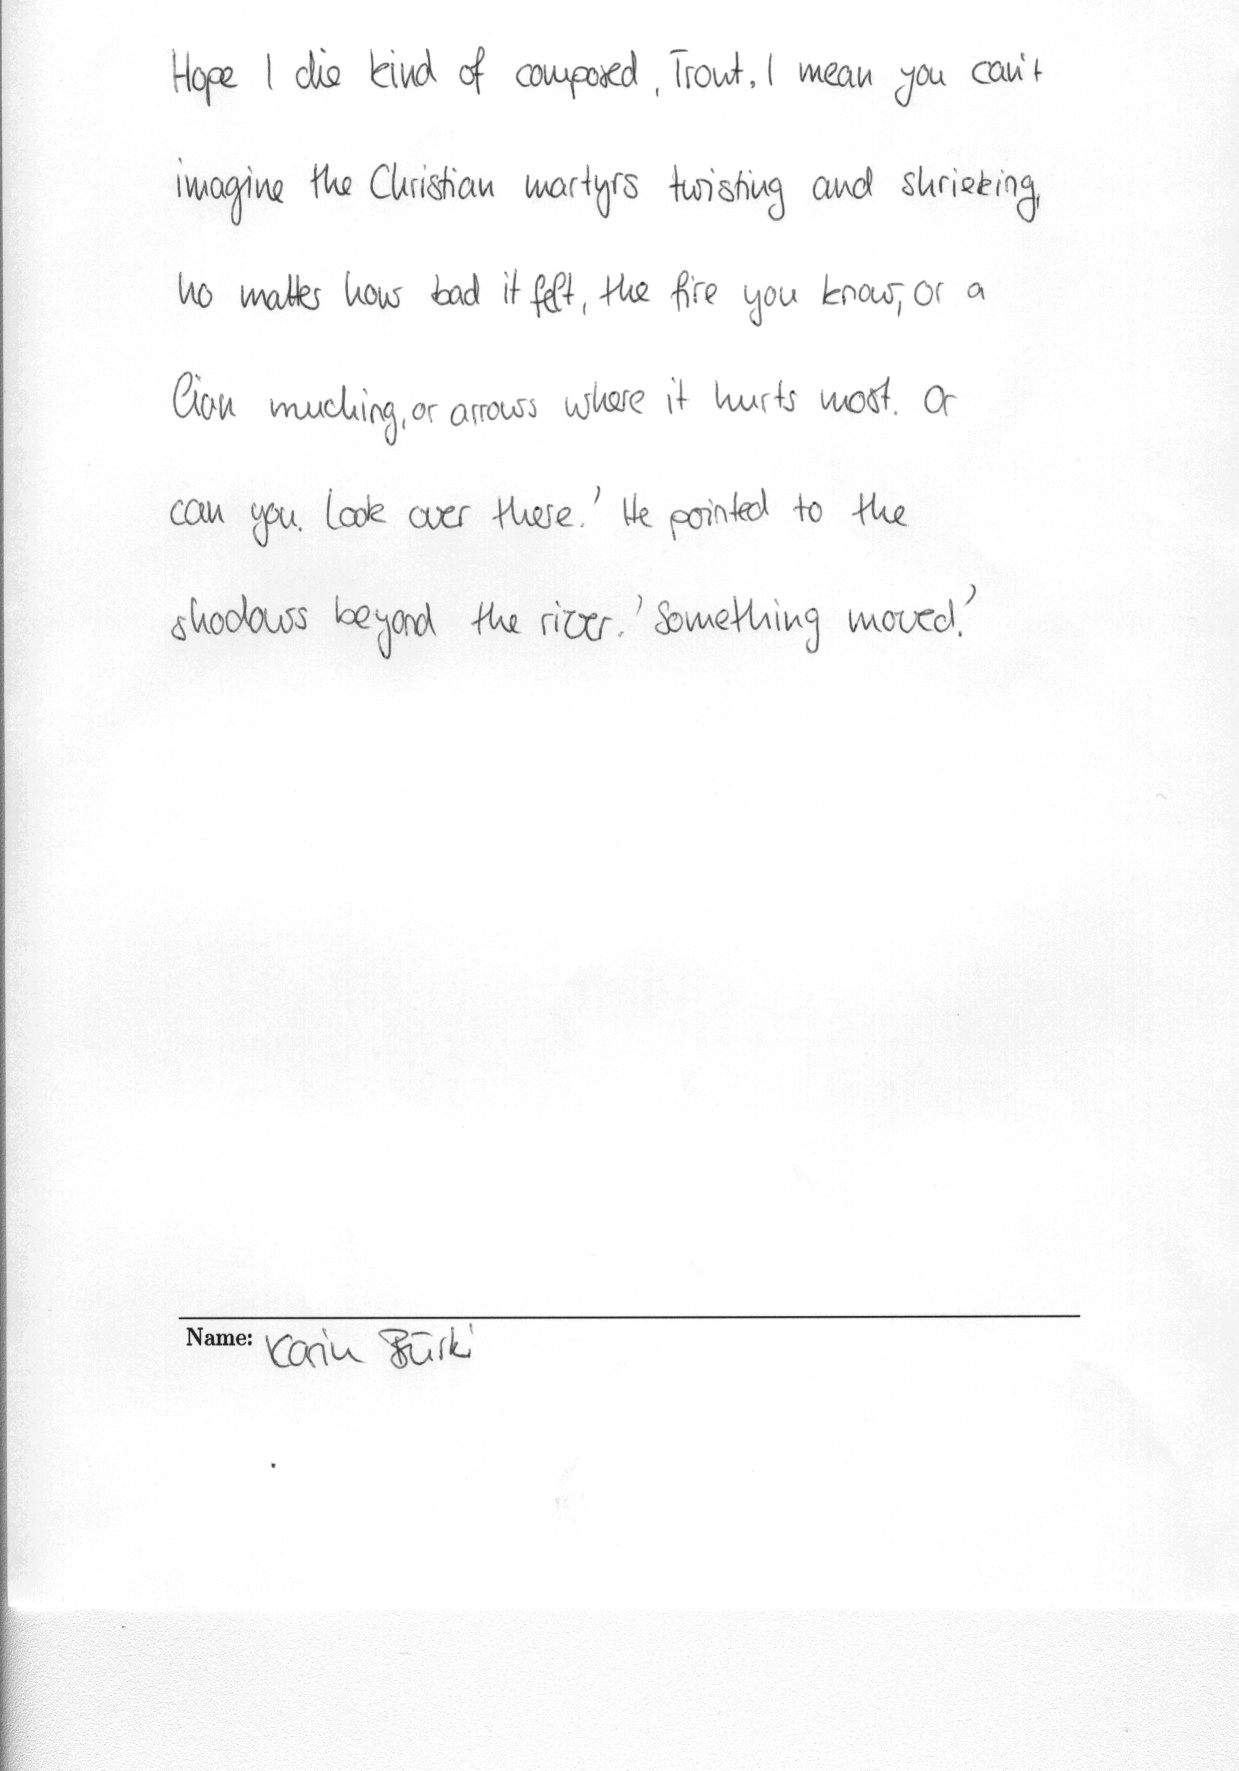 Hope I die kind of composed, Trout, I mean you can't
imagine the Christian martyrs twisting and shrieking,
no matter how bad it felt, the fire you know, or a
lion muching, or arrows where it hurts most. Or
can you. Look over there.' He pointed to the
shadows beyond the river. 'Something moved.'
Name: Karin Bürki